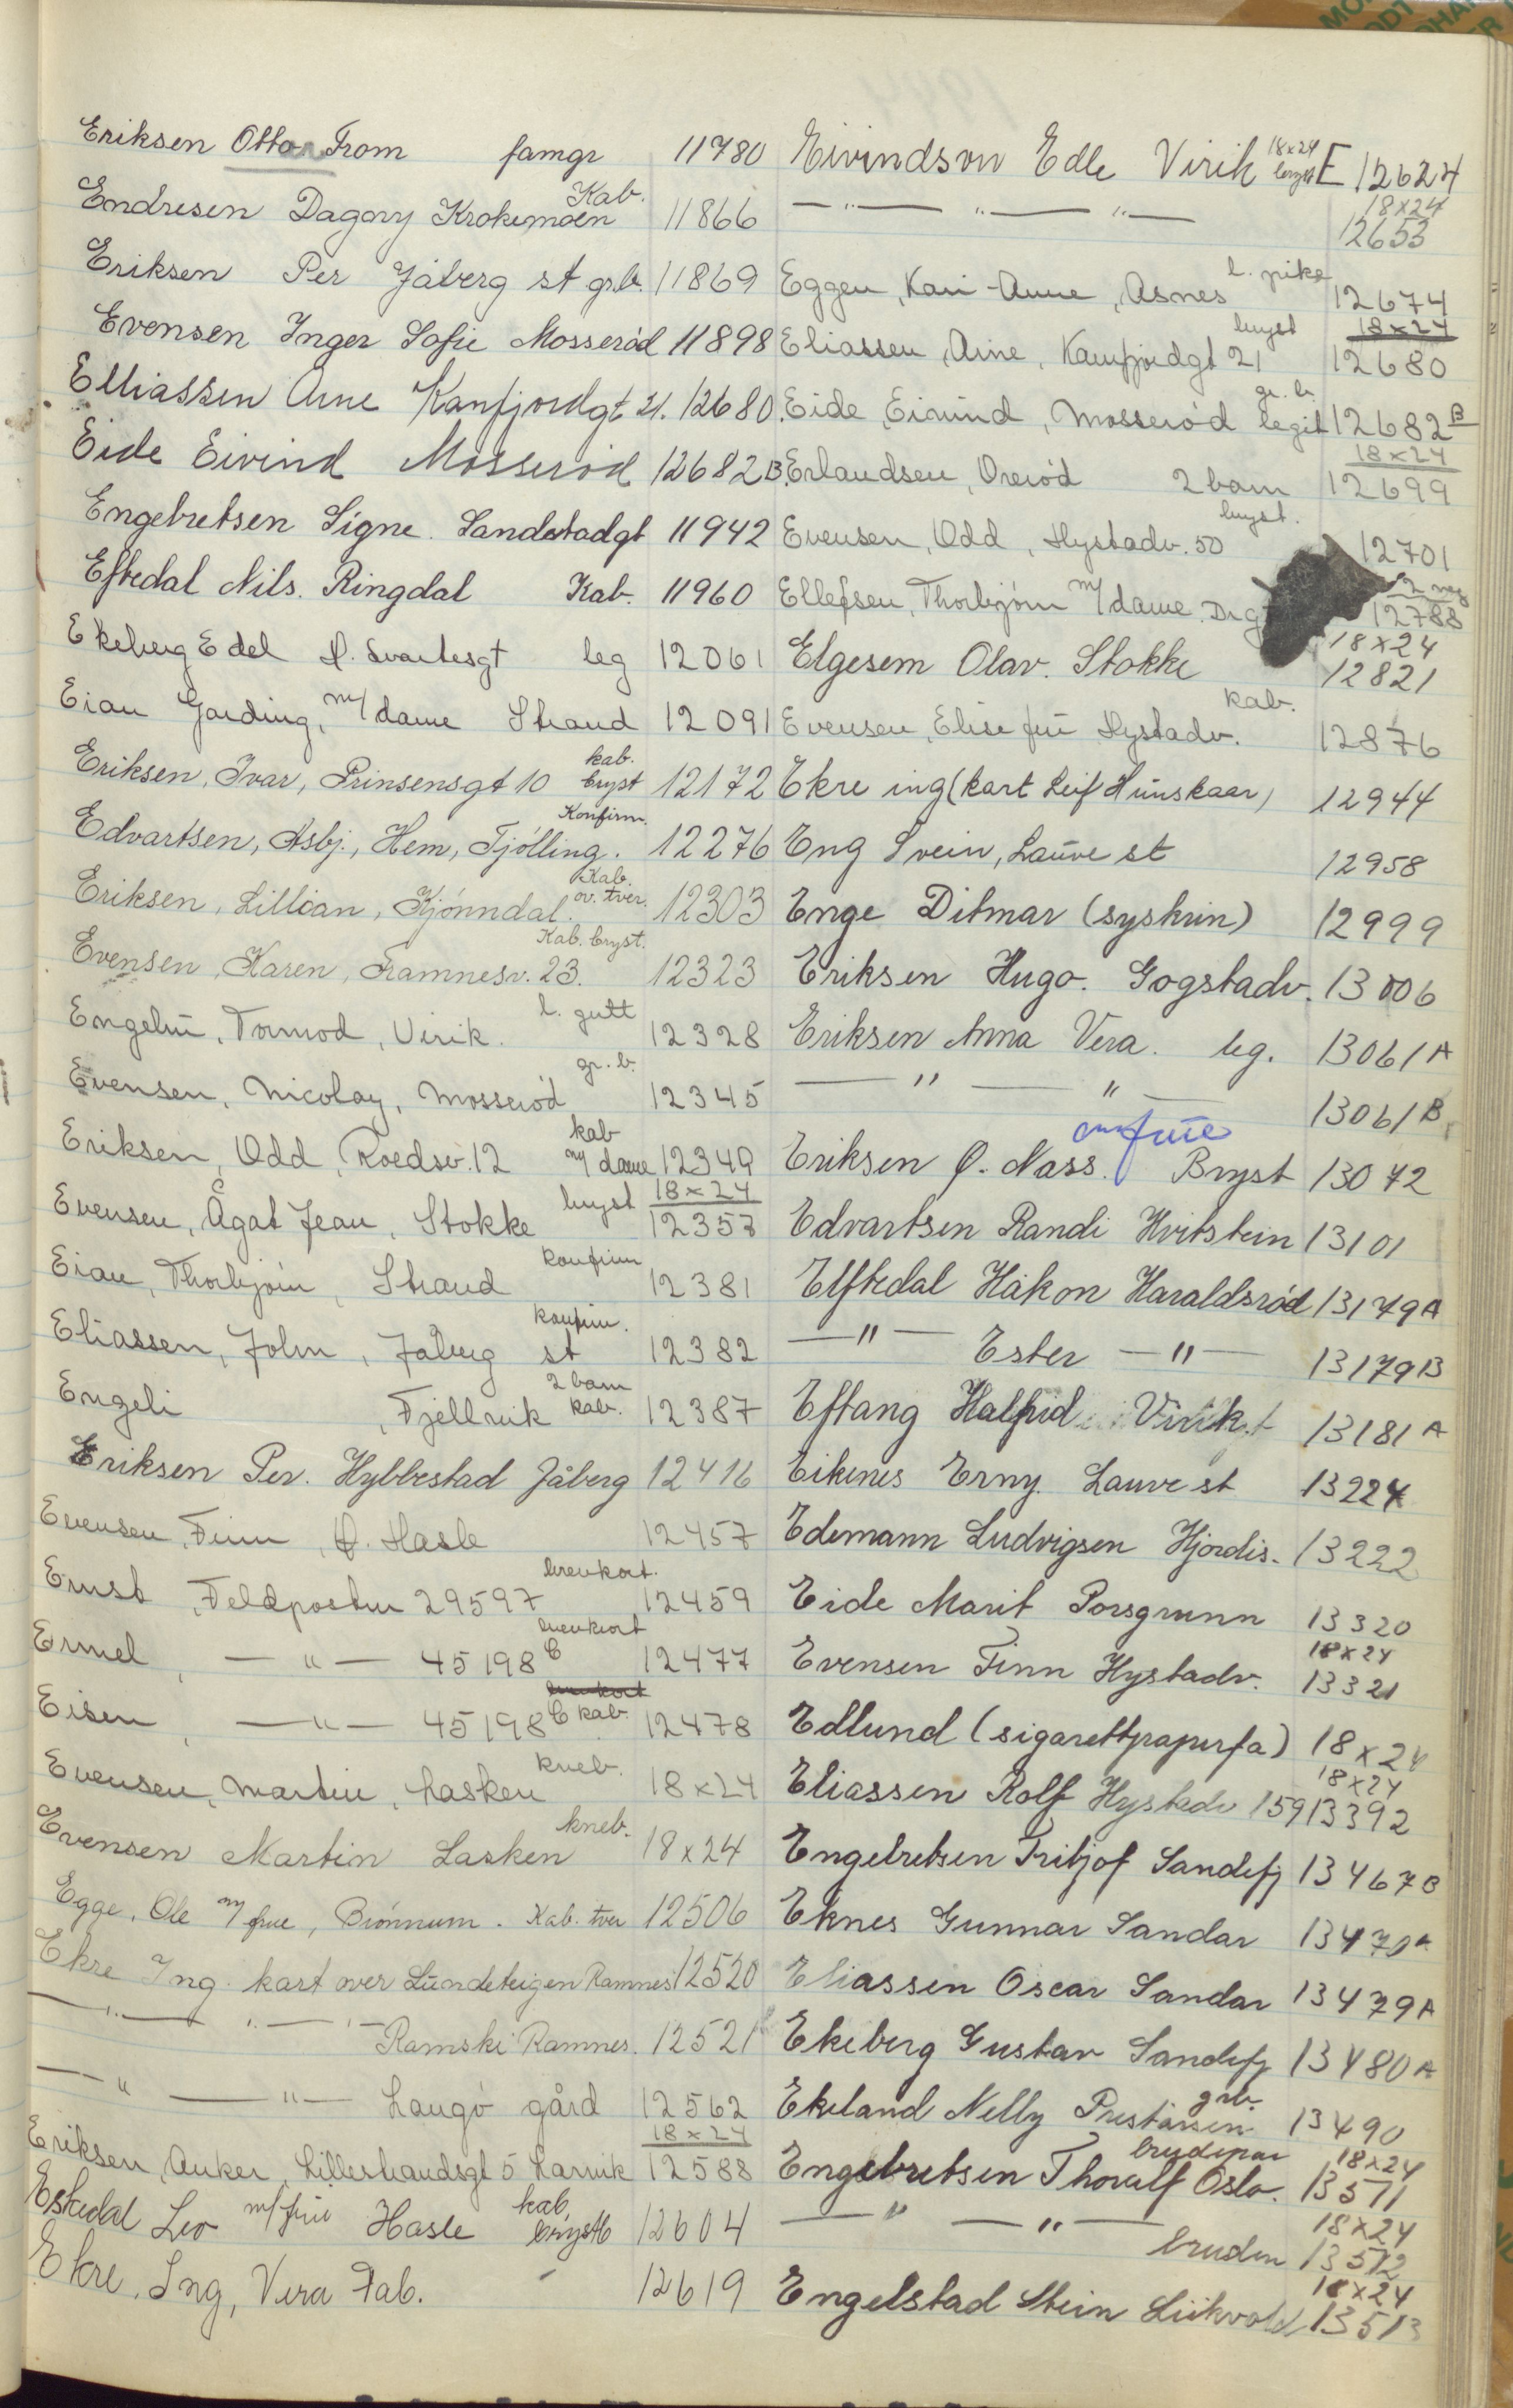 Eriksen Otto From famgr 11780
Endresen Dagovy Krokemoen Kab. 11866
Eriksen Per Jåberg st gr.b. 11869
Evensen Inger Sofie Mosserød 11898
Elliassen Arne Kamfjordgt 21. 12680.
Eide Eivind Mosserød 12682B.
Engebretsen Signe. Landstadgt 11942
Eftedal Nils. Ringdal Kab. 11960
Ekeberg Edel P. Svartesgt leg 12061
Eian Garding, m/dame Strand 12091
Eriksen, Ivar, Prinsensgt 10 kab. bryst 12172
Edvartsen, Asbj., Hem, Tjølling. Konfirm. 12276
Eriksen, Lillian, Kjønndal. Kab. ov. tver. 12303
Evensen, Karen, Framnesv. 23. Kab. bryst. 12323
Engelin, Tormod, Virik. l. gutt 12328
Evensen, Nicolay, Mosserød gr. b. 12345
Eriksen, Odd, Roedsv. 12 kab m/dame 12349
Evensen, Ågot Jean, Stokke bryst 18x24 12357
Eian, Thorbjørn, Strand konfirm 12381
Eliassen, John, Jåberg st konfirm. 12382
Engeli, Fjellvik 2 barn kab. 12387
Eriksen Per. Hybbestad Jåberg 12416
Evensen, Finn, Ø. Hasle 12457
Ernst, Feldpostnr 29597 brevkort. 12459
Ermel, —"— 45198 C brevkort 12477
Eisen, —"— 45198 C kab. 12478
Evensen, Martin, Lasken kneb. 18x24
Evensen Martin Lasken kneb. 18x24
Egge, Ole m/frue, Brønnum. Kab. tver 12506
Ekre Ing. kart over Lundeteigen Ramnes 12520
—"— "—"— Ramski Ramnes. 12521
—"— —"— Langø gård 12562
Eriksen, Anker, Lillestrandsgt 5 Larvik 18x24 12588
Eskedal Leo m/frue Hasle kab. brystb 12604
Ekre, Ing, Vera Fab. 12619
Eivindson Edle Virik 18x24 bryst E 12624
—"— "— "— 18x24 12653
Eggen, Kari-Anne, Asnes l. pike 12674
Eliassen, Arne, Kamfjordgt 21 bryst 18x24 12680
Eide, Eivind, Mosserød gr. b. legit 12682 B
Erlandsen, Orerød 2 barn 18x24 12699
Evensen, Odd, Hystadv. 50 bryst. 12701
Ellefsen, Thorbjørn m/dame. 12788
Elgesem Olav. Stokke 18x24 12821
Evensen, Elise fru Hystadv. kab. 12876
Ekre ing (kart Leif Hunskaar) 12944
Eng Svein, Lauve st 12958
Enge Ditmar (syskrin) 12999
Eriksen Hugo. Gogstadv. 13006
Eriksen Anna Vera. leg. 13061 A
—"— "— 13061 B
Eriksen Ø. Nass. Bryst 13072
Edvartsen Randi Hvitstein 13101
Elftedal Håkon Haraldsrød 13179A
—"— Ester —"— 13179B
Eftang Halfrid Virik. 13181 A
Eikenes Erny. Lauve st 13224
Edemann Ludvigsen Hjørdis. 13222
Eide Marit Porsgrunn 13320
Evensen Finn Hystadv. 18x24 13321
Edlund (sigarettpapirfa) 18x24
Eliassen Rolf Hystadv 159 18x24 13392
Engebretsen Fritjof Sandefj 13467B
Eknes Gunnar Sandar 13470A
Eliassen Oscar Sandar 13479A
Ekeberg Gustav Sandefj 13480A
Ekeland Nelly Preståsen. grb. 13490
Engebretsen Thoralf Oslo. brudepar 18x24 13511
—"— —"— bruden 18x24 13512
Engelstad Stein Liikvold 18x24 13513